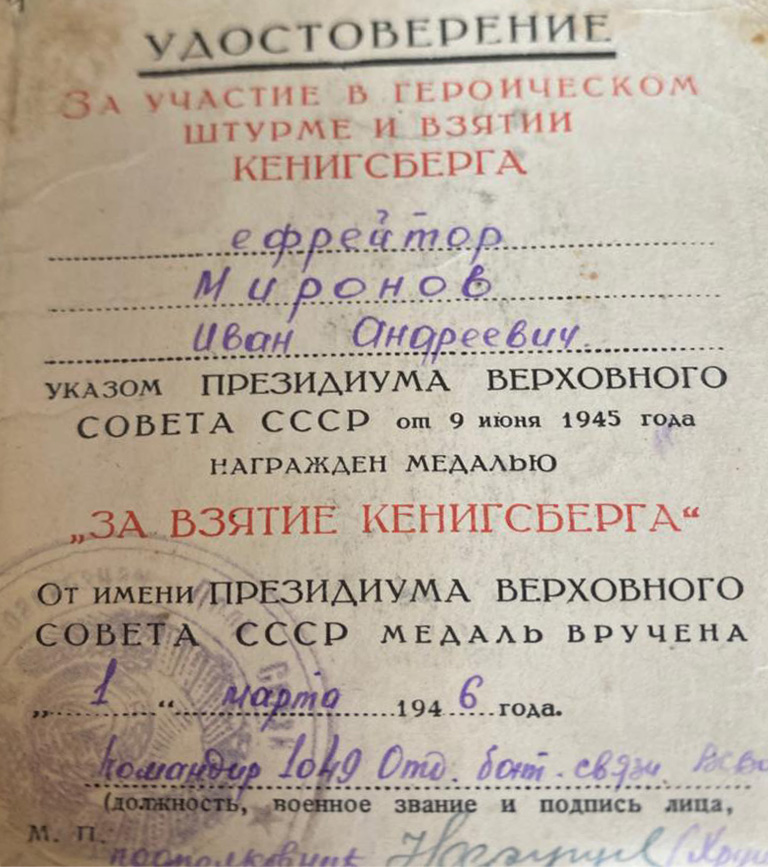 УДОСТОВЕРЕНИЕ
ЗА УЧАСТИЕ В ГЕРОИЧЕСКОМ
ШТУРМЕ И ВЗЯТИИ
КЕНИГСБЕРГА
ефрейтор
Миронов
Иван Андреевич
УКАЗОМ ПРЕЗИДИУМА ВЕРХОВНОГО
СОВЕТА СССР от 9 июня 1945 года
НАГРАЖДЕН МЕДАЛЬЮ
„ЗА ВЗЯТИЕ КЕНИГСБЕРГА“
ОТ ИМЕНИ ПРЕЗИДИУМА ВЕРХОВНОГО
СОВЕТА СССР МЕДАЛЬ ВРУЧЕНА
„1“ марта 1946 года.
Командир 1049 Отд. бат. связи
(должность, военное звание и подпись лица,
М. П.
подполковник